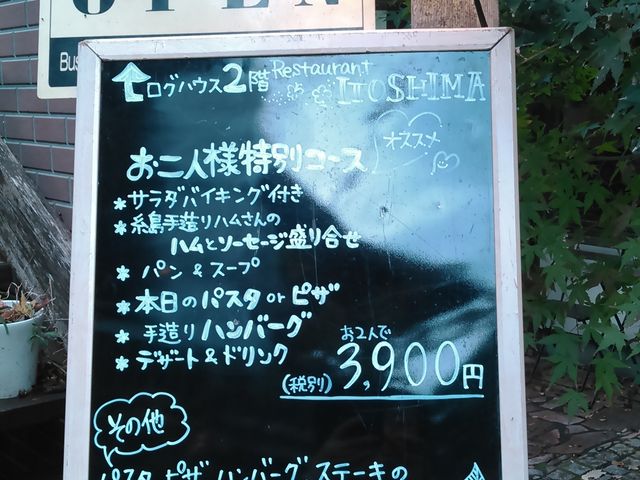 OPEN
Bus
↑ログハウス2階 Restaurant ITOSHIMA
お二人様特別コース オススメ
*サラダバイキング付き
*糸島手造りハムさんの
ハムとソーセージ盛り合せ
*パン&スープ
*本日のパスタorピザ
*手造りハンバーグ
*デザート&ドリンク
お2人で
(税別) 3,900円
その他
パスタ、ピザ、ハンバーグ、ステーキの